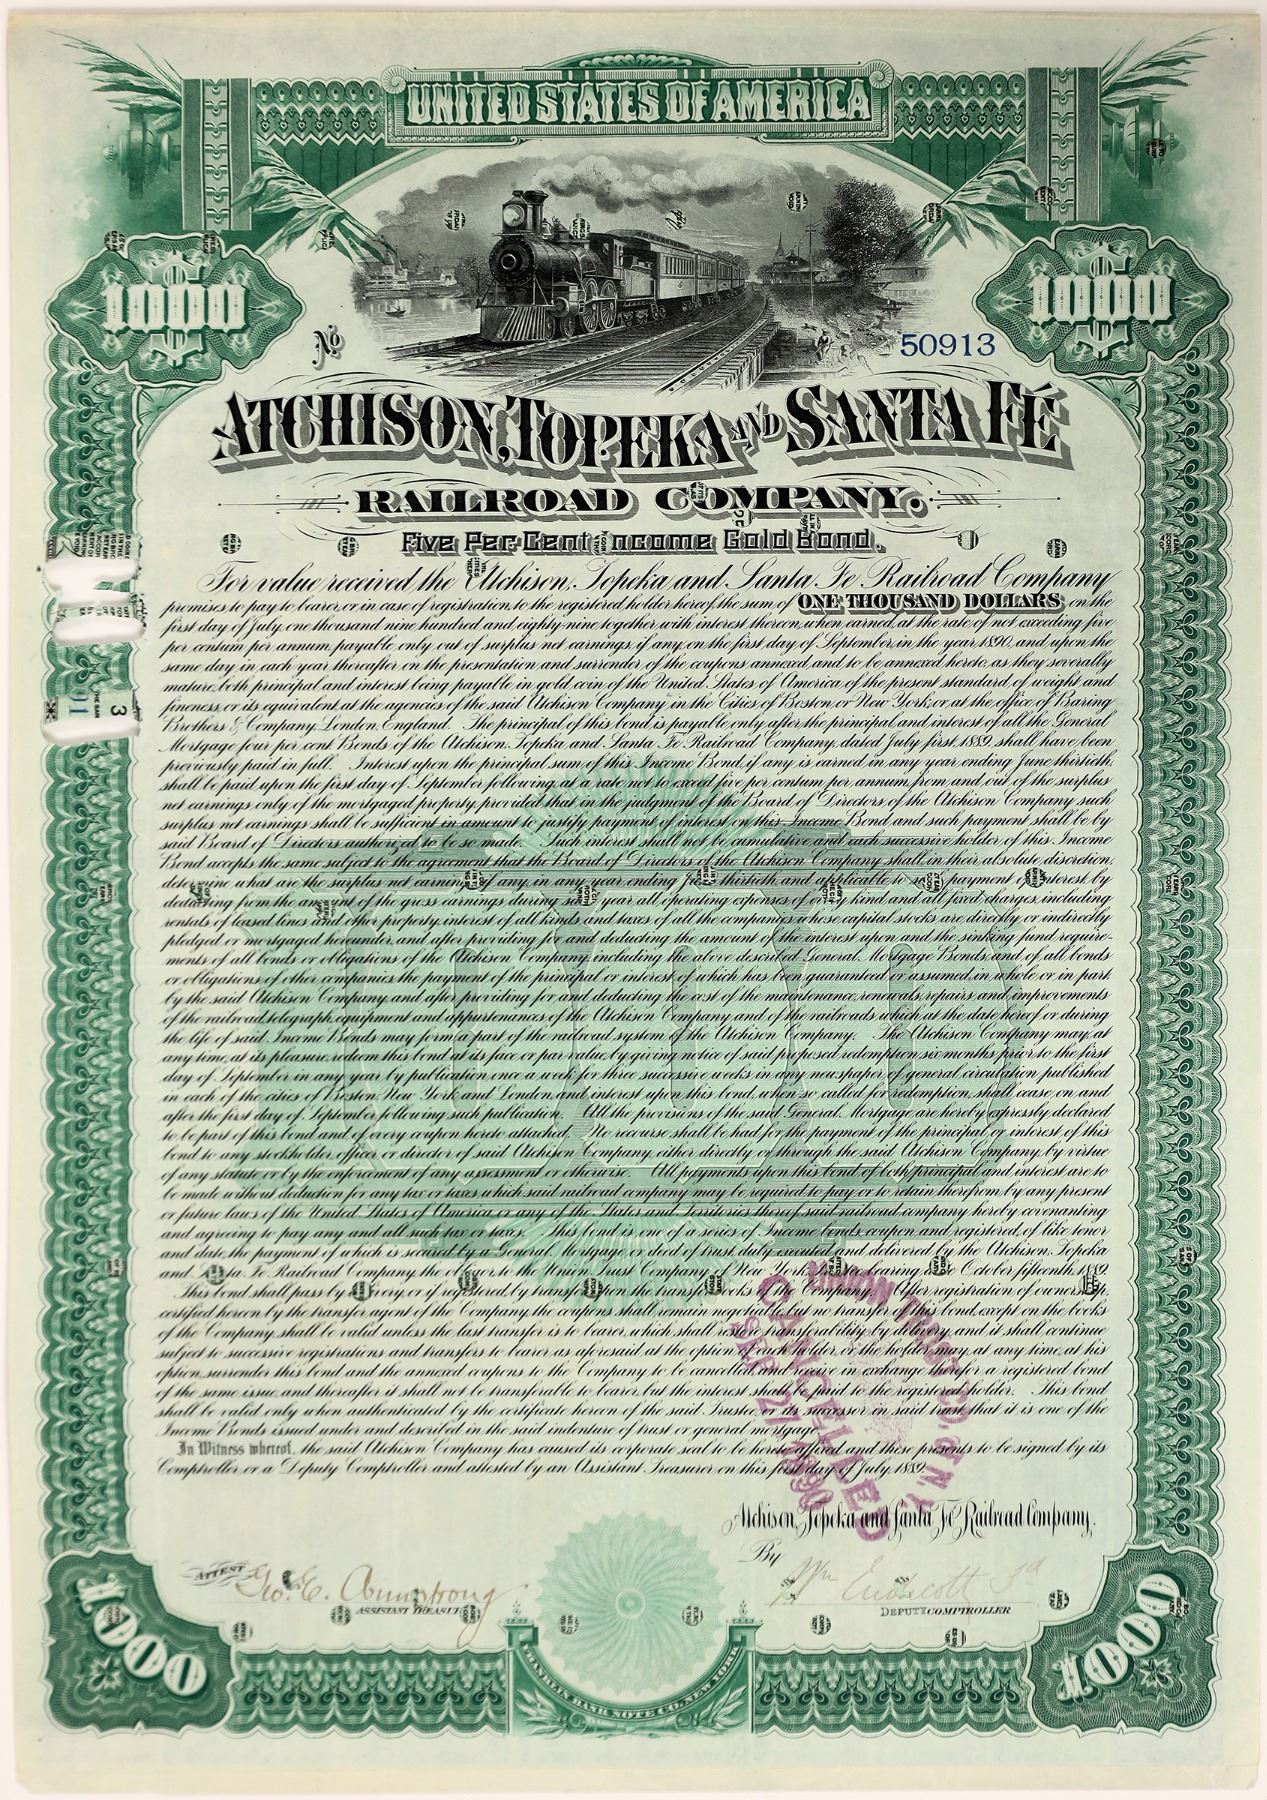 UNITED STATES OF AMERICA
1000
1000
No
50913
ATCHISON, TOPEKA AND SANTA FÉ
RAILROAD COMPANY.
Five Per-Cent Income Gold Bond.
For value received the Atchison, Topeka and Santa Fe Railroad Company
promises to pay to bearer, or in case of registration, to the registered holder hereof, the sum of ONE THOUSAND DOLLARS, on the
first day of July, one thousand nine hundred and eighty-nine, together with interest thereon, when earned, at the rate of not exceeding five
per centum per annum, payable only out of surplus net earnings, if any, on the first day of September, in the year 1890, and upon the
same day in each year thereafter, on the presentation and surrender of the coupons annexed and to be annexed hereto, as they severally
mature, both principal and interest being payable in gold coin of the United States of America, of the present standard of weight and
fineness, or its equivalent at the agencies of the said Atchison Company in the Cities of Boston or New York, or at the office of Baring
Brothers & Company, London, England. The principal of this bond is payable only after the principal and interest of all the General
Mortgage four per cent Bonds of the Atchison, Topeka and Santa Fe Railroad Company, dated July first, 1889, shall have been
previously paid in full. Interest upon the principal sum of this Income Bond, if any is earned in any year, ending June thirtieth,
shall be paid upon the first day of September following, at a rate not to exceed five per centum per annum, from and out of the surplus
net earnings only of the mortgaged property, provided that in the judgment of the Board of Directors of the Atchison Company such
surplus net earnings shall be sufficient in amount to justify payment of interest on this Income Bond and such payment shall be by
said Board of Directors authorized to be so made. Such interest shall not be cumulative and each successive holder of this Income
Bond accepts the same subject to the agreement that the Board of Directors of the Atchison Company shall, in their absolute discretion,
determine what are the surplus net earnings, if any, in any year ending June thirtieth, and applicable to said payment of interest, by
deducting from the amount of the gross earnings during said year all operating expenses of every kind and all fixed charges, including
rentals of leased lines and other property, interest of all kinds and taxes of all the companies whose capital stocks are directly or indirectly
pledged or mortgaged hereunder, and after providing for and deducting the amount of the interest upon and the sinking fund require-
ments of all bonds or obligations of the Atchison Company, including the above described General Mortgage Bonds, and of all bonds
or obligations of other companies, the payment of the principal or interest of which has been guaranteed or assumed, in whole or in part,
by the said Atchison Company, and after providing for and deducting the cost of the maintenance, renewals, repairs and improvements
of the railroad, telegraph, equipment and appurtenances of the Atchison Company and of the railroads which at the date hereof or during
the life of said Income Bonds may form a part of the railroad system of the Atchison Company. The Atchison Company may, at
any time, at its pleasure, redeem this bond at its face or par value, by giving notice of said proposed redemption, six months prior to the first
day of September in any year, by publication once a week for three successive weeks, in any newspaper of general circulation published
in each of the cities of Boston, New York and London, and interest upon this bond, when so called for redemption, shall cease on and
after the first day of September following such publication. All the provisions of the said General Mortgage are hereby expressly declared
to be part of this bond and of every coupon hereto attached. No recourse shall be had for the payment of the principal or interest of this
bond to any stockholder, officer or director of said Atchison Company, either directly or through the said Atchison Company, by virtue
of any statute or by the enforcement of any assessment or otherwise. All payments upon this bond of both principal and interest are to
be made without deduction for any tax or taxes which said railroad company may be required to pay or to retain therefrom by any present
or future laws of the United States of America or any of the States and Territories thereof, said railroad company hereby covenanting
and agreeing to pay any and all such tax or taxes. This bond is one of a series of Income bonds, coupon and registered, of like tenor
and date, the payment of which is secured by a General Mortgage or deed of trust, duly executed and delivered by the Atchison, Topeka
and Santa Fe Railroad Company, the obligor to the Union Trust Company of New York, Trustee, bearing date October fifteenth, 1889.
This bond shall pass by delivery, or if registered, by transfer upon the transfer books of the Company. After registration of ownership,
certified hereon by the transfer agent of the Company, the coupons shall remain negotiable, but no transfer of this bond, except on the books
of the Company, shall be valid unless the last transfer is to bearer, which shall restore transferability by delivery, and it shall continue
subject to successive registrations and transfers to bearer as aforesaid at the option of each holder, or the holder may, at any time, at his
option, surrender this bond and the annexed coupons to the Company to be cancelled and receive in exchange therefor a registered bond
of the same issue, and thereafter it shall not be transferable to bearer, but the interest shall be paid to the registered holder. This bond
shall be valid only when authenticated by the certificate hereon of the said Trustee, or its successor in said trust, that it is one of the
Income Bonds issued under and described in the said indenture of trust or general mortgage.
In Witness whereof, the said Atchison Company has caused its corporate seal to be hereto affixed and these presents to be signed by its
Comptroller or a Deputy Comptroller and attested by an Assistant Treasurer on this first day of July, 1889.
UNION TRUST CO. OF N.Y.
CANCELLED
SEP 27 1890
Atchison, Topeka and Santa Fé Railroad Company.
By
ATTEST
Geo. E. Armstrong
ASSISTANT TREASURER
Wm Endicott 3d
DEPUTY COMPTROLLER
1000
1000
FRANKLIN BANK NOTE CO. NEW YORK.